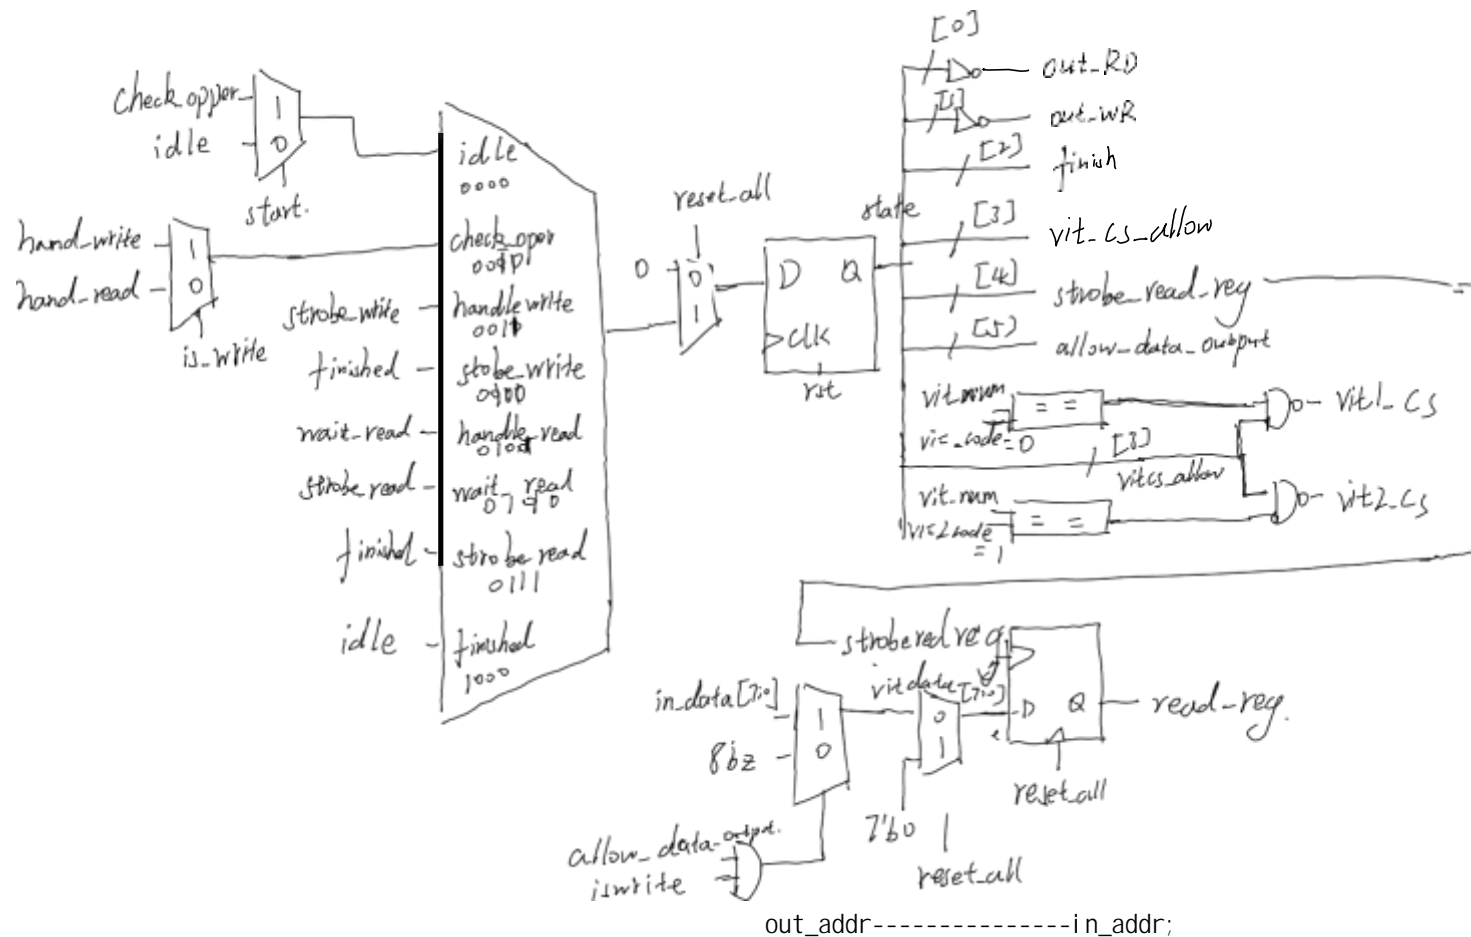 check_opper
idle
1
0
start.
hand_write
hand_read
1
0
is_write
strobe_write
finished
wait_read
strobe_read
finished
idle
idle
0000
check_oper
handlewrite
stobe_write
handle_read
wait_read
strobe read
0111
finished
1000
reset_all
0
0
1
D
Q
clk
rst
state
[0]
out_RD
[1]
out_WR
[2]
finish
[3]
vit_cs_allow
[4]
strobe_read_reg
[5]
allow_data_output
vit_num
= =
=0
[3]
vitcs_allow
vit1_cs
vit_num
= =
=1
vit2_cs
strobe red reg
in_data[7:0]
8bz
1
0
vitdata[7:0]
0
1
D
Q
read_reg.
reset_all
7'b0
reset_all
allow_data_output.
iswrite
out_addr---------------in_addr;